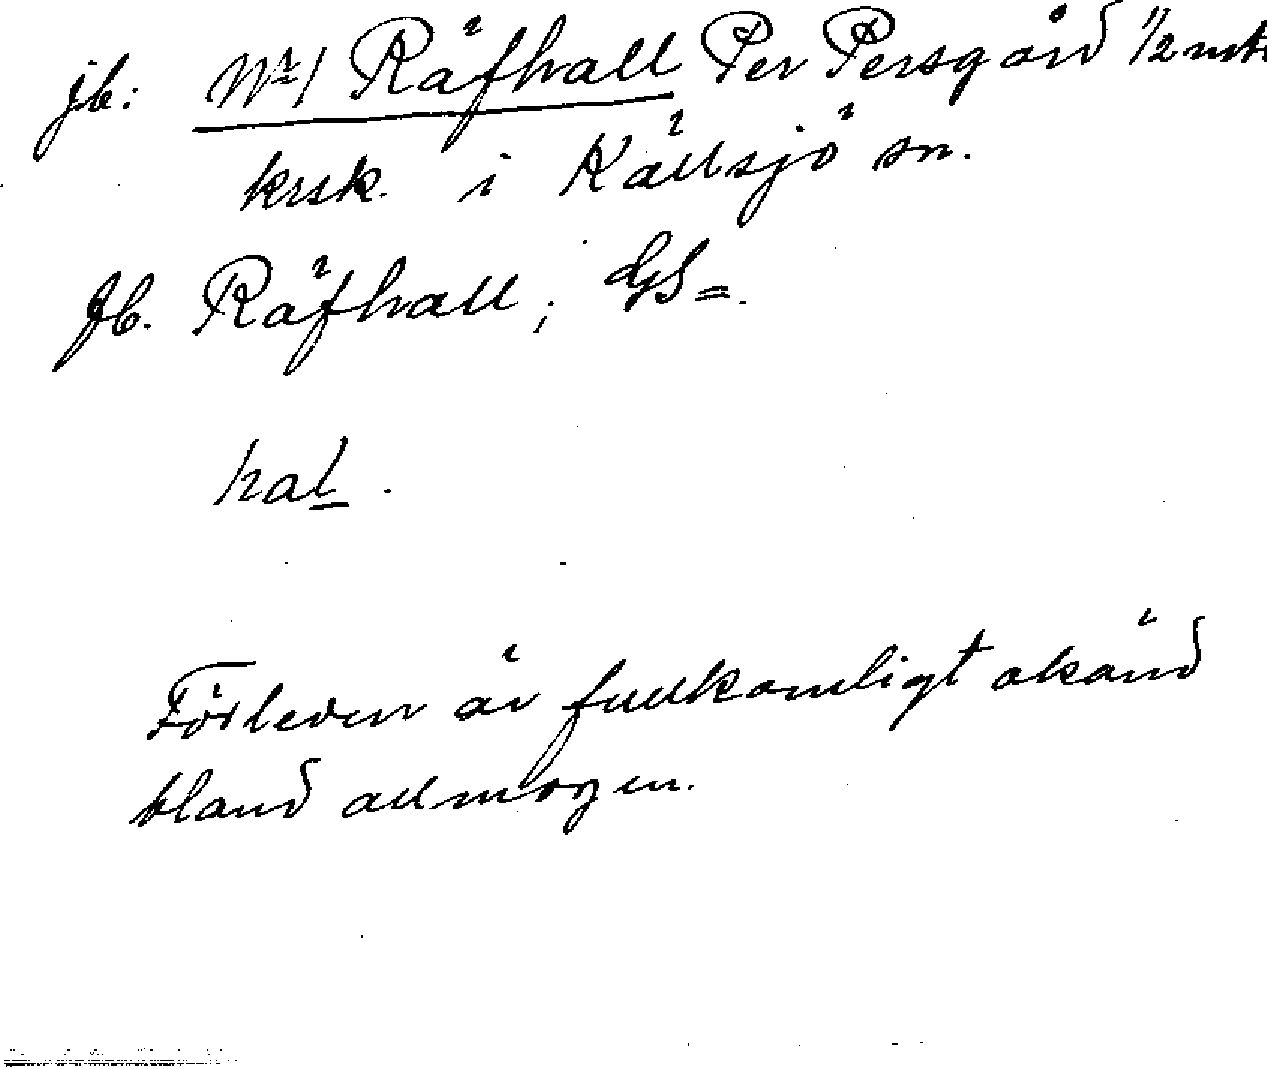 jb: Nr 1 Räfhall Per Persgård 1/2 mtl
krsk. i Källsjö sn.
fb. Räfhall; GS =.
hal.
Förleden är fullkomligt okänd
bland allmogen.